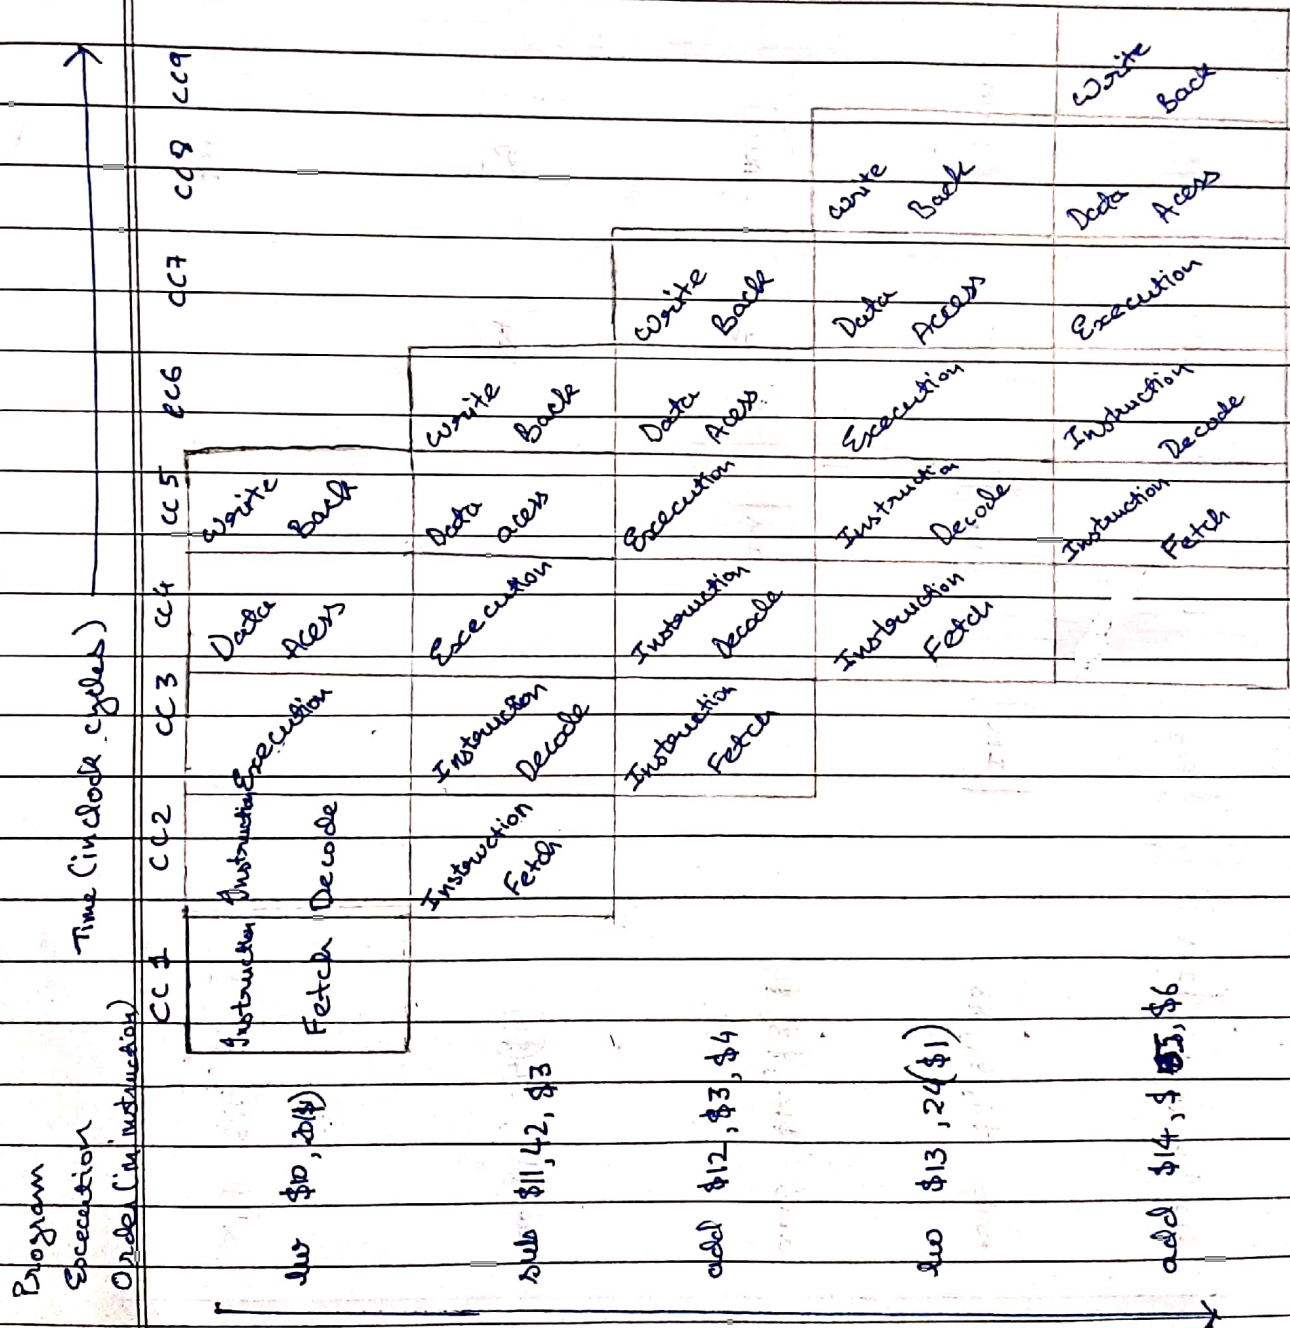 Time (in clock cycles)
Program
Execution
Order (in instruction)
CC 1 CC2 CC3 CC4 CC5 CC6 CC7 CC8 CC9
lw $10, 20($1)
Instruction
Fetch
Instruction
Decode
Execution
Data
Acess
Write
Back
sub $11, 42, $3
Instruction
Fetch
Instruction
Decode
Execution
Data
acess
Write
Back
add $12, $3, $4
Instruction
Fetch
Instruction
Decode
Execution
Data
Acess
Write
Back
lw $13, 24($1)
Instruction
Fetch
Instruction
Decode
Execution
Data
Access
Write
Back
add $14, $5, $6
Instruction
Fetch
Instruction
Decode
Execution
Data
Acess
Write
Back